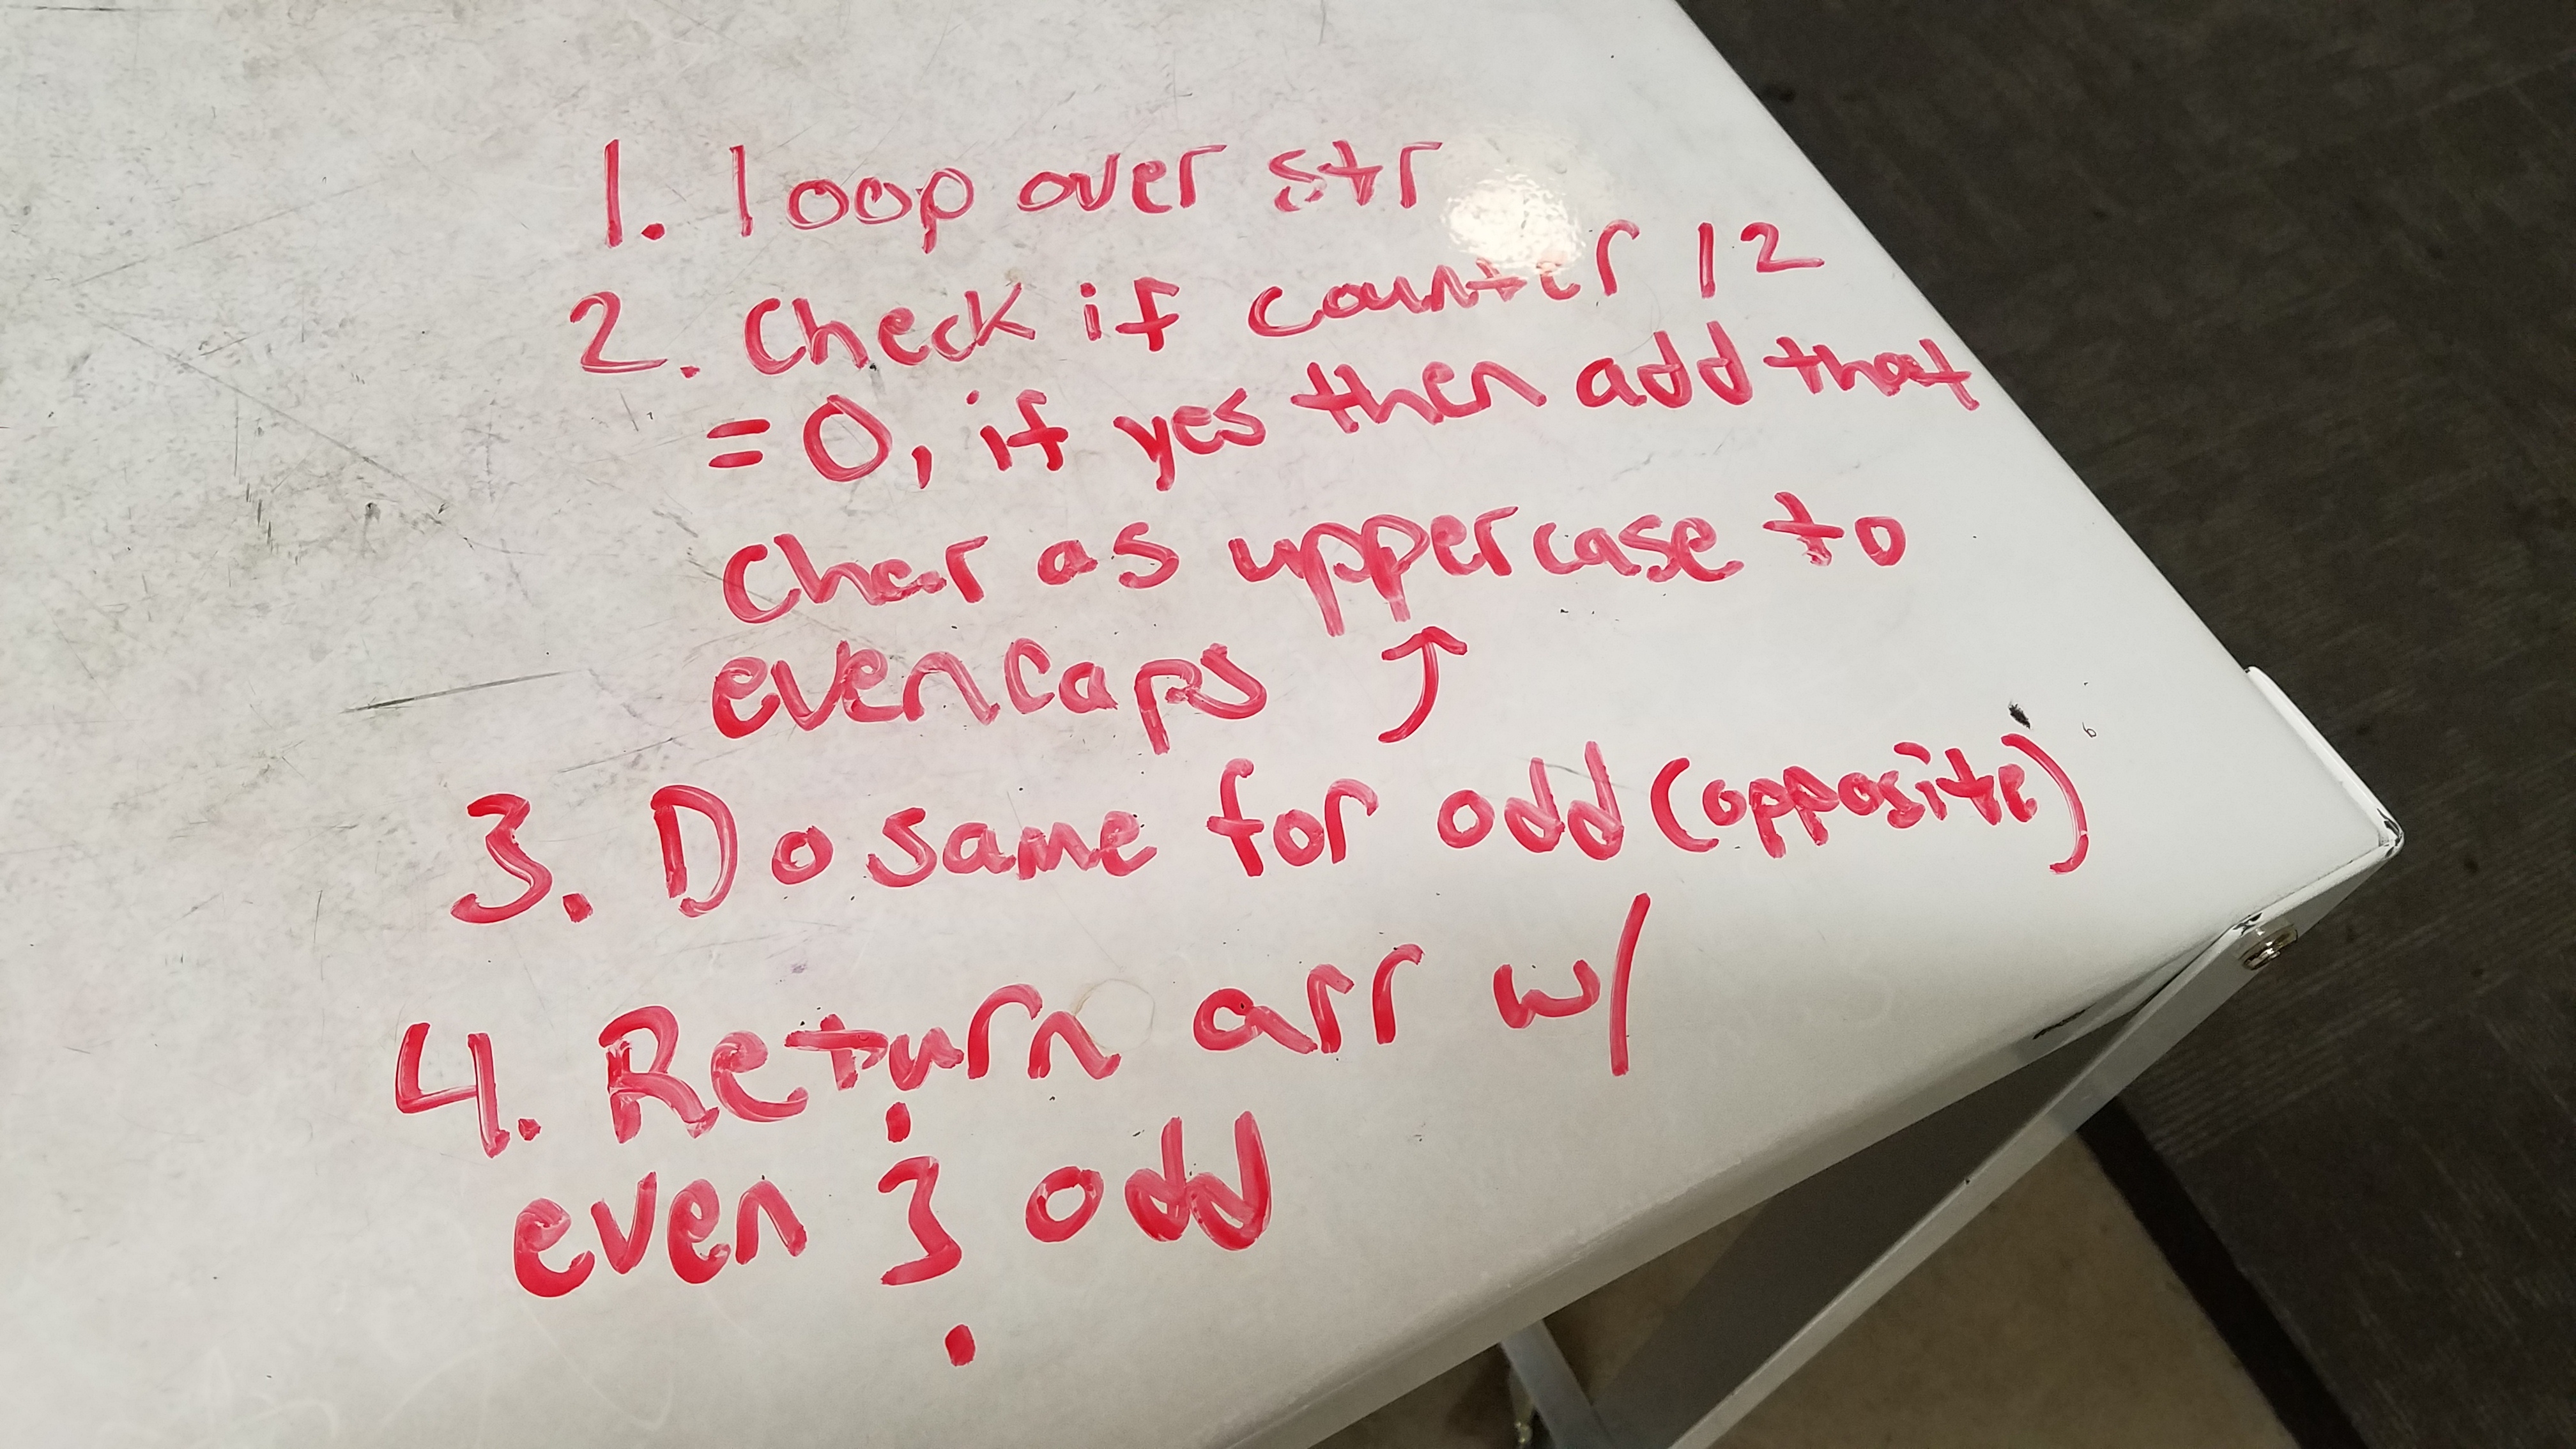 1. loop over str
2. Check if counter 12
=0, if yes then add that
char as uppercase to
evencaps ↑
3. Do same for odd (opposite)
4. Return arr w/
even & odd